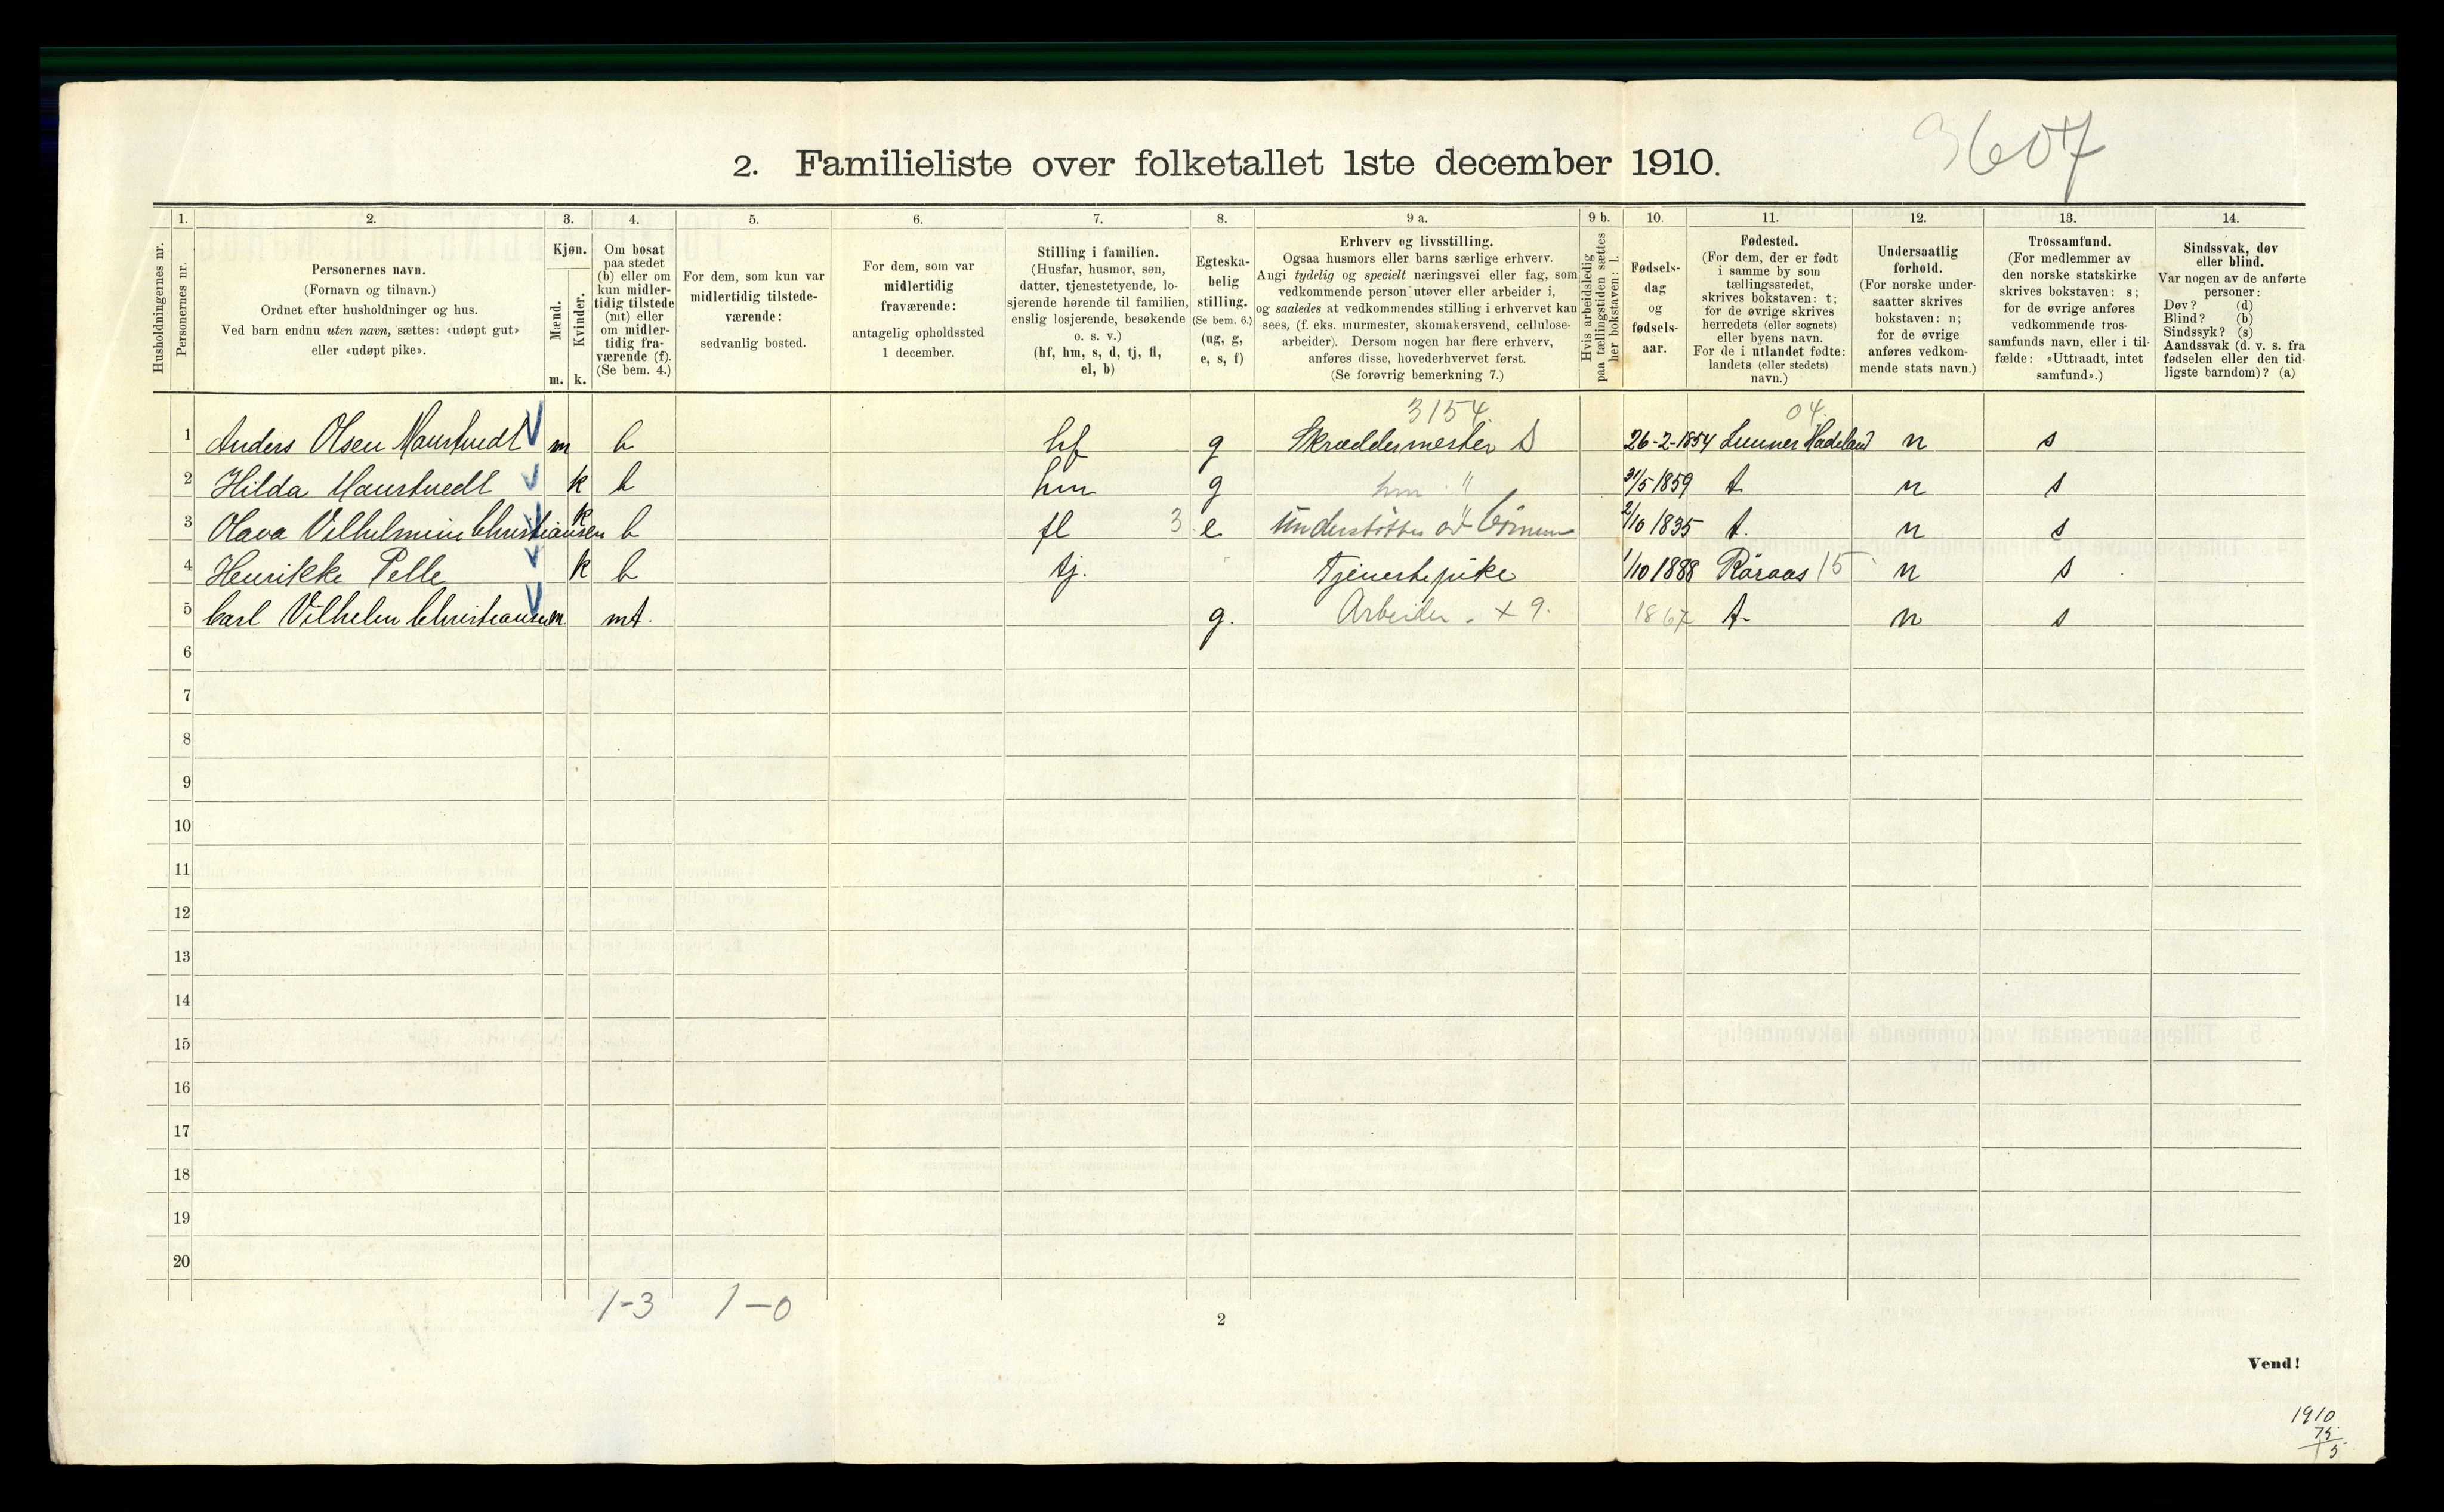 3607
2. Familieliste over folketallet 1ste december 1910.
Husholdningernes nr.
1. Personernes nr.
2. Personernes navn.
(Fornavn og tilnavn.)
Ordnet efter husholdninger og hus.
Ved barn endnu uten navn, sættes: «udøpt gut»
eller «udøpt pike».
3. Kjøn.
Mænd. m.
Kvinder. k.
4. Om bosat
paa stedet
(b) eller om
kun midler-
tidig tilstede
(mt) eller
om midler-
tidig fra-
værende (f).
(Se bem. 4.)
5. For dem, som kun var
midlertidig tilstede-
værende:
sedvanlig bosted.
6. For dem, som var
midlertidig
fraværende:
antagelig opholdssted
1 december.
7. Stilling i familien.
(Husfar, husmor, søn,
datter, tjenestetyende, lo-
sjerende hørende til familien,
enslig losjerende, besøkende
o. s. v.)
(hf, hm, s, d, tj, fl,
el, b)
8. Egteska-
belig
stilling.
(Se bem. 6.)
(ug, g,
e, s, f)
9 a. Erhverv og livsstilling.
Ogsaa husmors eller barns særlige erhverv.
Angi tydelig og specielt næringsvei eller fag, som
vedkommende person utøver eller arbeider i,
og saaledes at vedkommendes stilling i erhvervet kan
sees, (f. eks. murmester, skomakersvend, cellulose-
arbeider). Dersom nogen har flere erhverv,
anføres disse, hovederhvervet først.
(Se forøvrig bemerkning 7.)
9 b. Hvis arbeidsledig
paa tællingstiden sættes
her bokstaven: l.
10. Fødsels-
dag
og
fødsels-
aar.
11. Fødested.
(For dem, der er født
i samme by som
tællingsstedet,
skrives bokstaven: t;
for de øvrige skrives
herredets (eller sognets)
eller byens navn.
For de i utlandet fødte:
landets (eller stedets)
navn.)
12. Undersaatlig
forhold.
(For norske under-
saatter skrives
bokstaven: n;
for de øvrige
anføres vedkom-
mende stats navn.)
13. Trossamfund.
(For medlemmer av
den norske statskirke
skrives bokstaven: s;
for de øvrige anføres
vedkommende tros-
samfunds navn, eller i til-
fælde: «Uttraadt, intet
samfund».)
14. Sindssvak, døv
eller blind.
Var nogen av de anførte
personer:
Døv? (d)
Blind? (b)
Sindssyk? (s)
Aandssvak (d. v. s. fra
fødselen eller den tid-
ligste barndom)? (a)
3154 04.
1 Anders Olsen m b hf g Skræddermester S 26-2-1854 Lunner Hadeland n s
2 Hilda k b hm g hm " 31/5 1859 t n s
3 Olava Vilhelmine Christiansen k b fl 3 e understøttes av 2/10 1835 t. n s
4 Henrikke Pelle k b tj. Tjenestepike 1/10 1888 Röraas 15 n s
5 Carl Vilhelm Christiansen m mt. g. Arbeider. x 9. 1867 t. n s
6
7
8
9
10
11
12
13
14
15
16
17
18
19
20
1-3 1-0
2
Vend!
1910
75
5